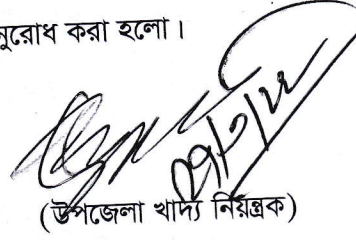 নুরোধ করা হলো।
(উপজেলা খাদ্য নিয়ন্ত্রক)